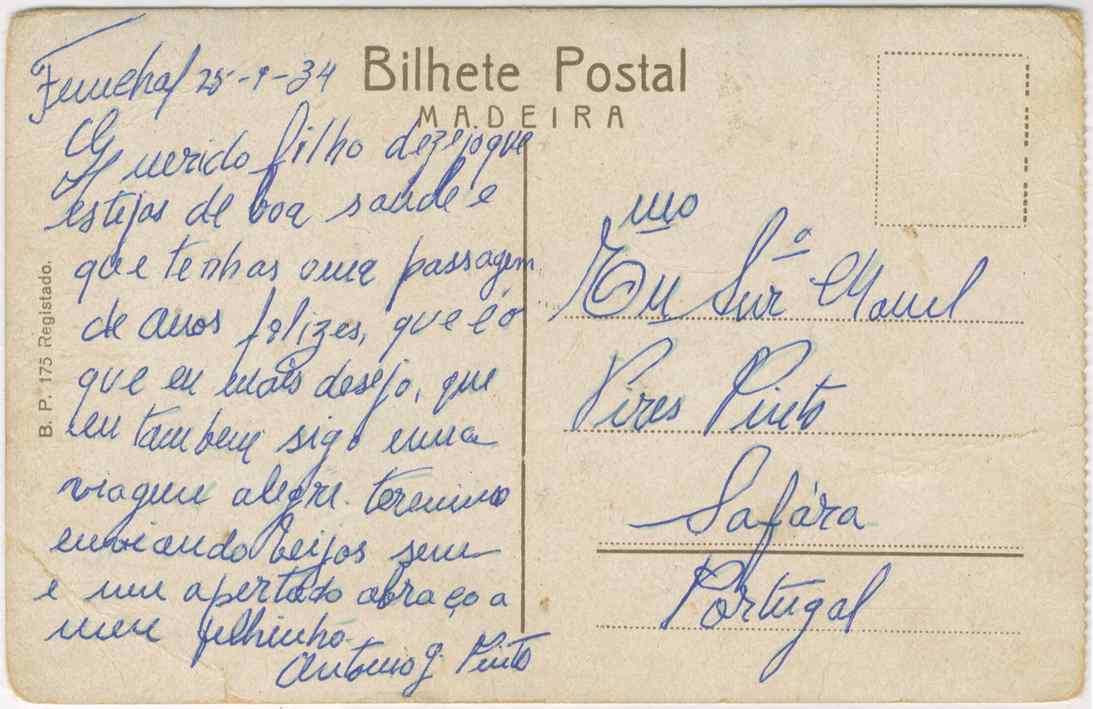 Bilhete Postal
MADEIRA
Funchal 25-9-34
Querido filho dezejo que
estejas de boa saude e
que tenhas uma passagem
de anos felizes, que é o
que eu mais desejo, que
eu tambem sigo numa
viagem alegre. termino
enviando beijos sem
e um apertado abraço a
meu filhinho
Antonio J. Pinto
B. P. 175 Registado.
mo
Snr Manuel
Pires Pinto
Safára
Portugal